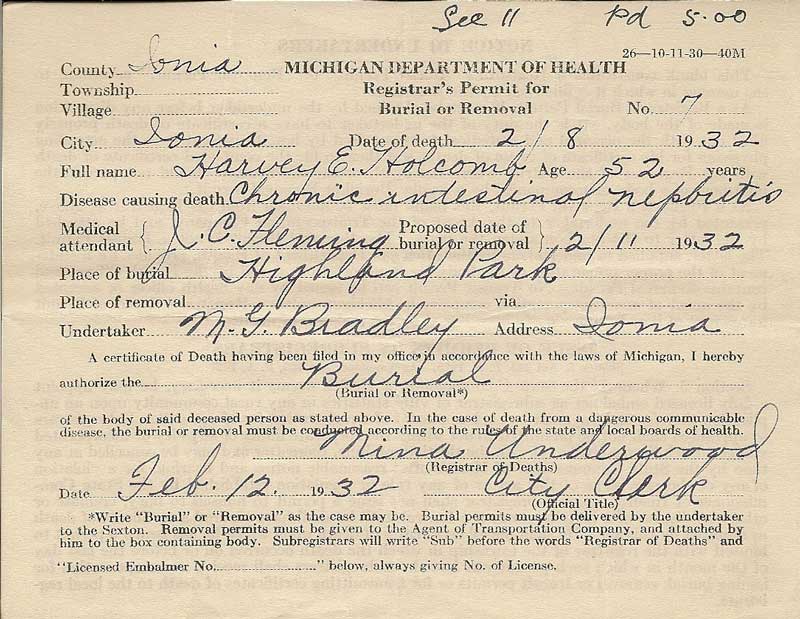 Sec 11 Pd 5.00
26—10-11-30—40M
County Ionia MICHIGAN DEPARTMENT OF HEALTH
Township Registrar's Permit for
Village Burial or Removal No. 7
City Ionia Date of death 2/8 1932
Full name Harvey E. Holcomb Age 52 years
Disease causing death Chronic intestinal nephritis
Medical attendant } J. C. Fleming Proposed date of burial or removal } 2/11 1932
Place of burial Highland Park
Place of removal via
Undertaker M. G. Bradley Address Ionia
A certificate of Death having been filed in my office in accordance with the laws of Michigan, I hereby
authorize the Burial
(Burial or Removal*)
of the body of said deceased person as stated above. In the case of death from a dangerous communicable
disease, the burial or removal must be conducted according to the rules of the state and local boards of health.
Mina Underwood
(Registrar of Deaths)
Date Feb. 12. 1932 City Clerk
(Official Title)
*Write "Burial" or "Removal" as the case may be. Burial permits must be delivered by the undertaker
to the Sexton. Removal permits must be given to the Agent of Transportation Company, and attached by
him to the box containing body. Subregistrars will write "Sub" before the words "Registrar of Deaths" and
"Licensed Embalmer No. " below, always giving No. of License.